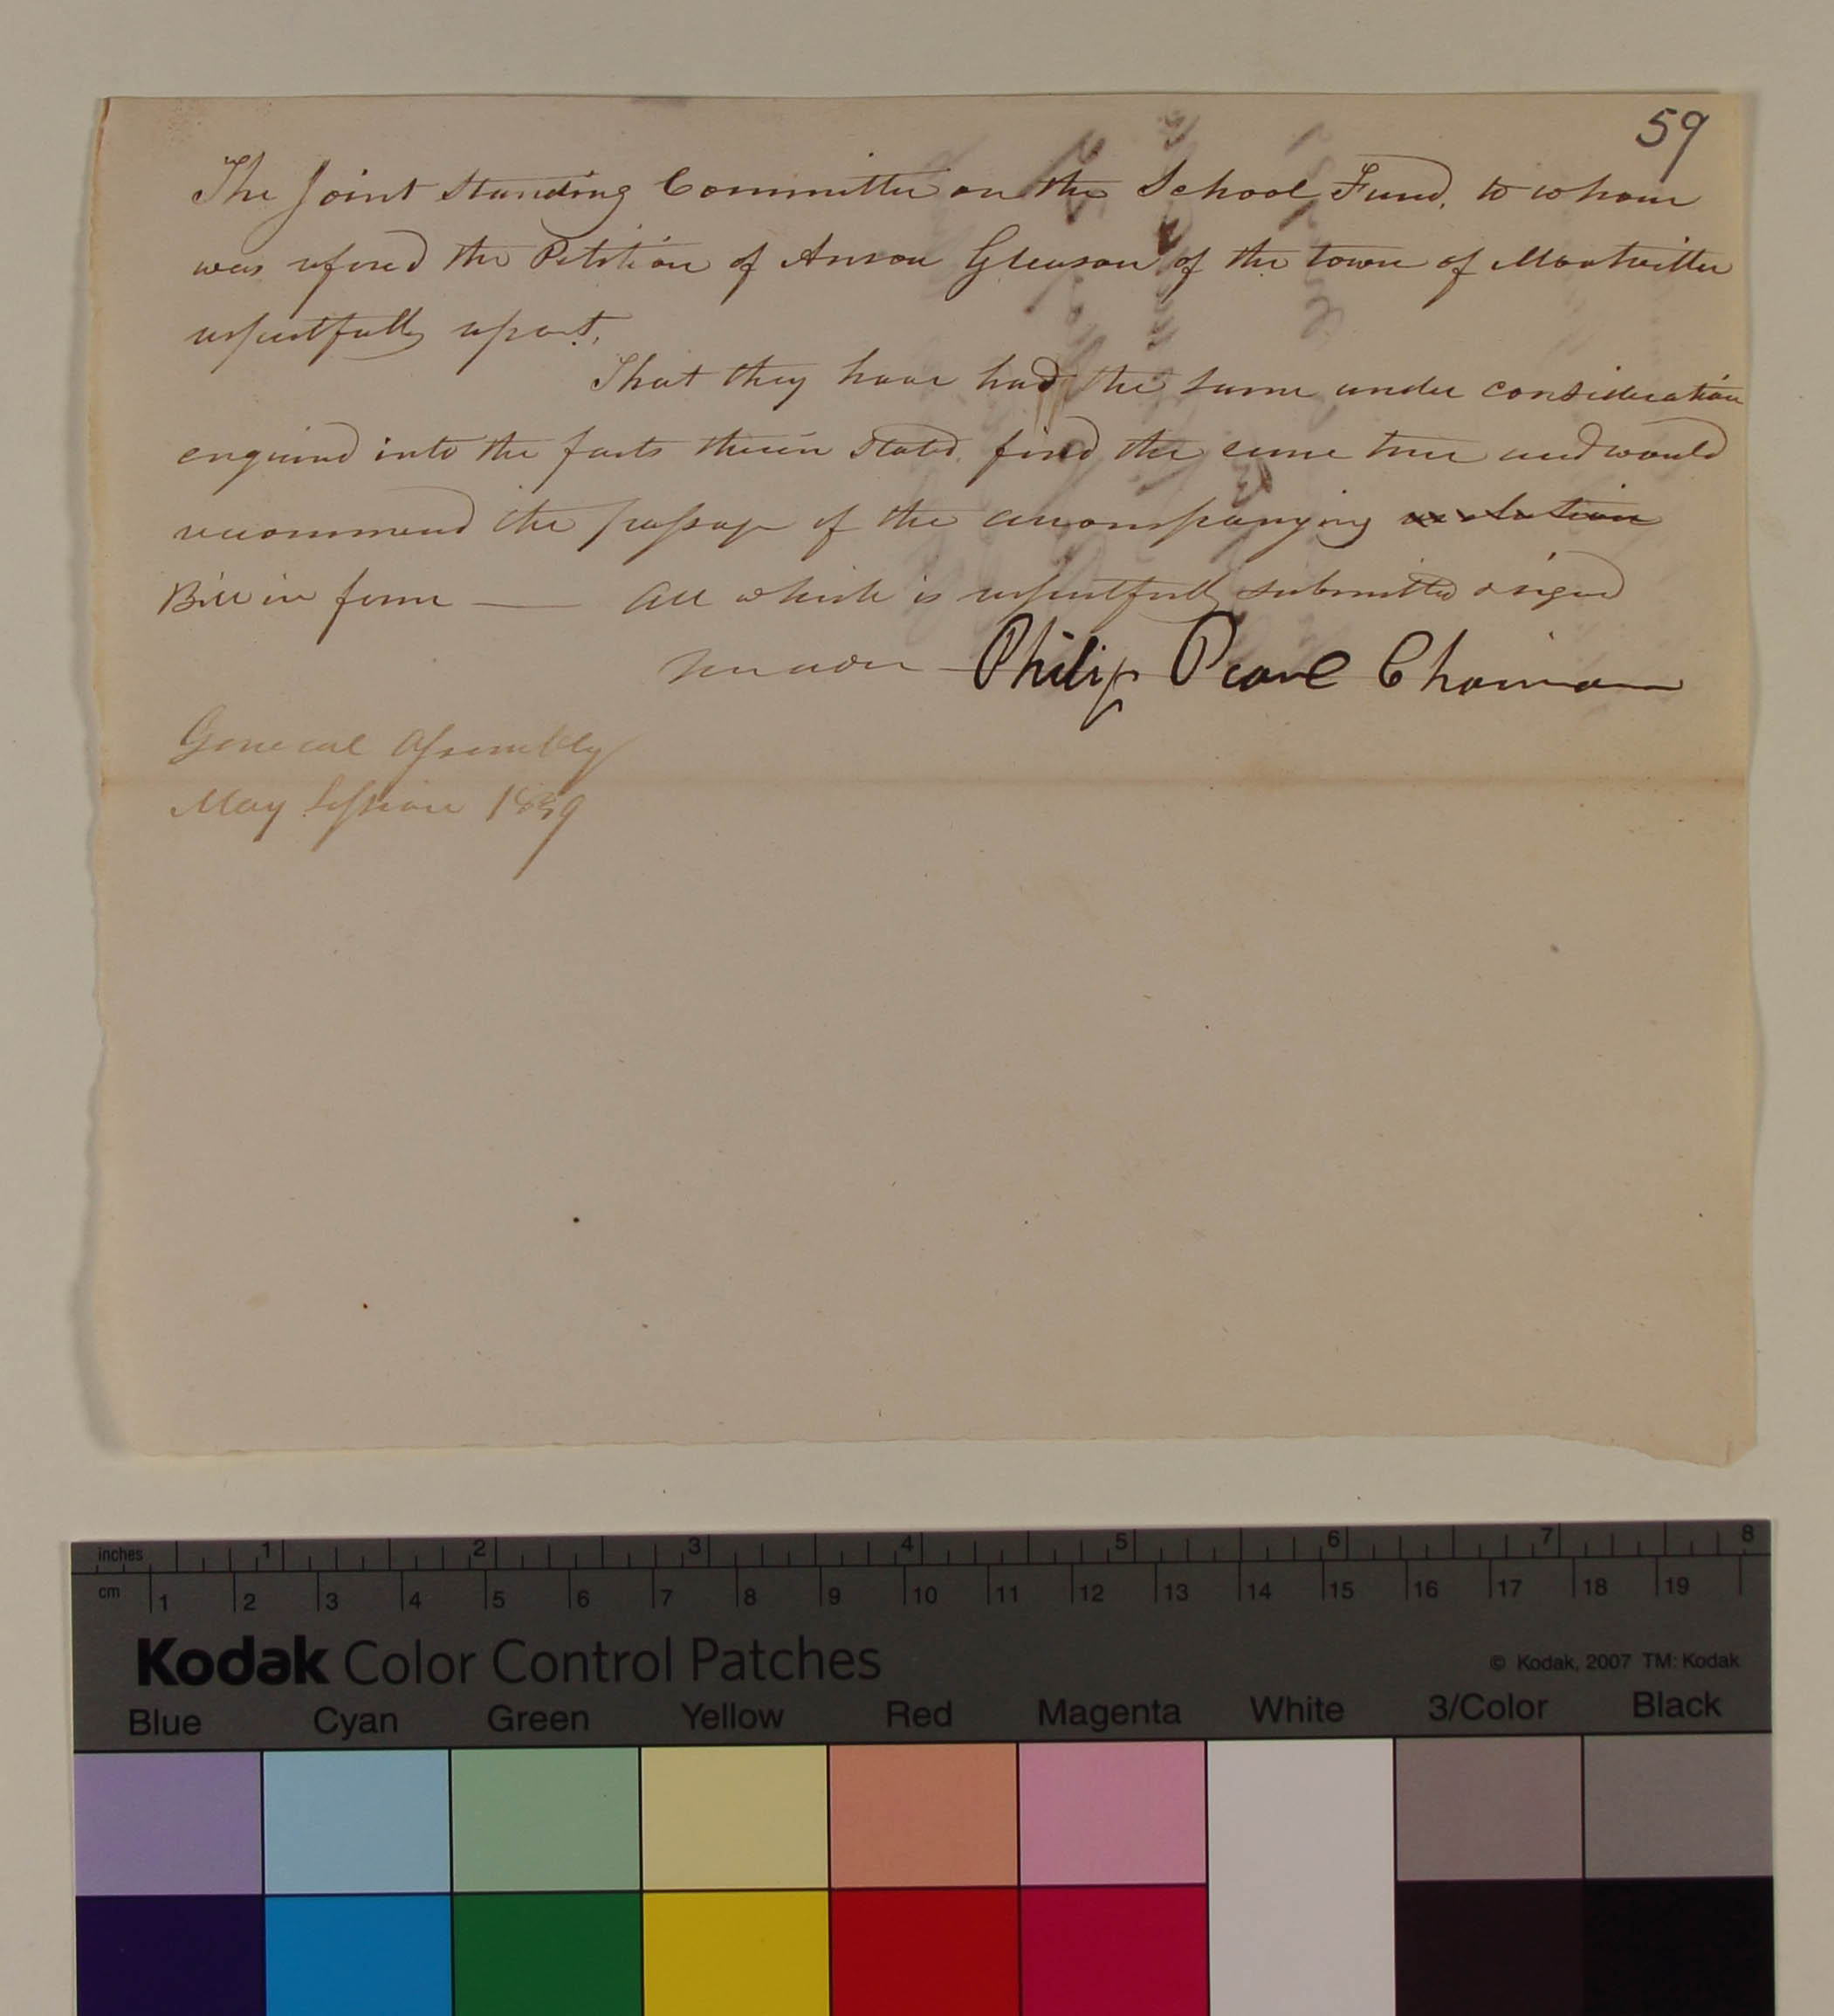 59
The Joint Standing Committee on the School Fund, to whom
was refered the Petition of Anson Gleason of the town of Montville
respectfully report,
That they have had the same under consideration
enquired into the facts therein stated, find the same true and would
recommend the passage of the accompanying resolution
Bill in form — All which is respectfully submitted & signed
Philip Pearl Chairman
General Assembly
May Session 1839
inches 1 2 3 4 5 6 7 8
cm 1 2 3 4 5 6 7 8 9 10 11 12 13 14 15 16 17 18 19
Kodak Color Control Patches
© Kodak, 2007 TM: Kodak
Blue Cyan Green Yellow Red Magenta White 3/Color Black